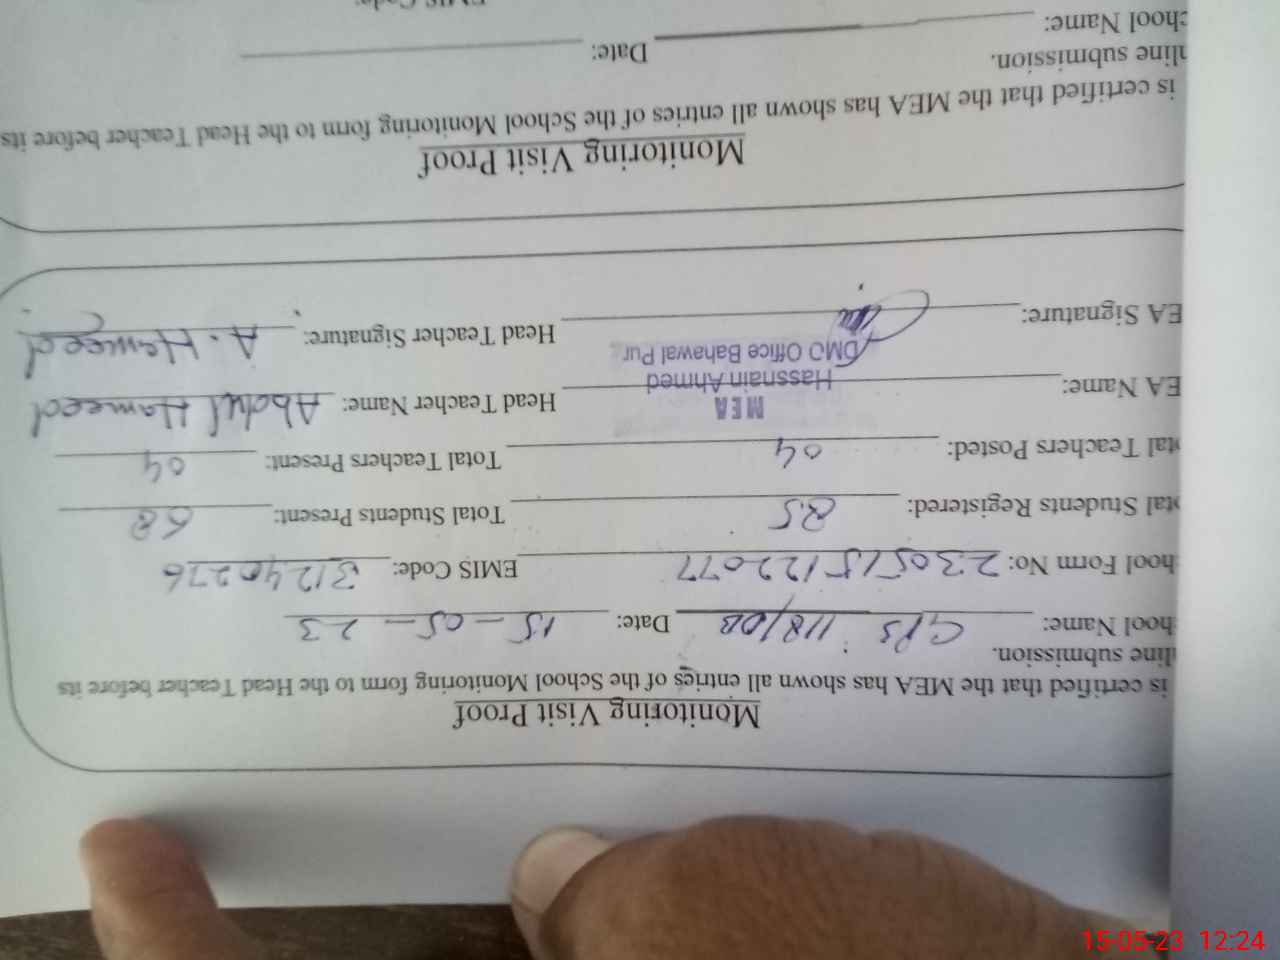 Monitoring Visit Proof
is certified that the MEA has shown all entries of the School Monitoring form to the Head Teacher before its
line submission.
hool Name: GPS 118/DB Date: 15-05-23
hool Form No: 230515122077 EMIS Code: 31240276
tal Students Registered: 85 Total Students Present: 68
tal Teachers Posted: 04 Total Teachers Present: 04
MEA
EA Name: Hassnain Ahmed Head Teacher Name: Abdul Hameed
DMO Office Bahawal Pur
EA Signature: Head Teacher Signature: A. Hameed
Monitoring Visit Proof
is certified that the MEA has shown all entries of the School Monitoring form to the Head Teacher before its
nline submission.
chool Name: Date:
15-05-23 12:24